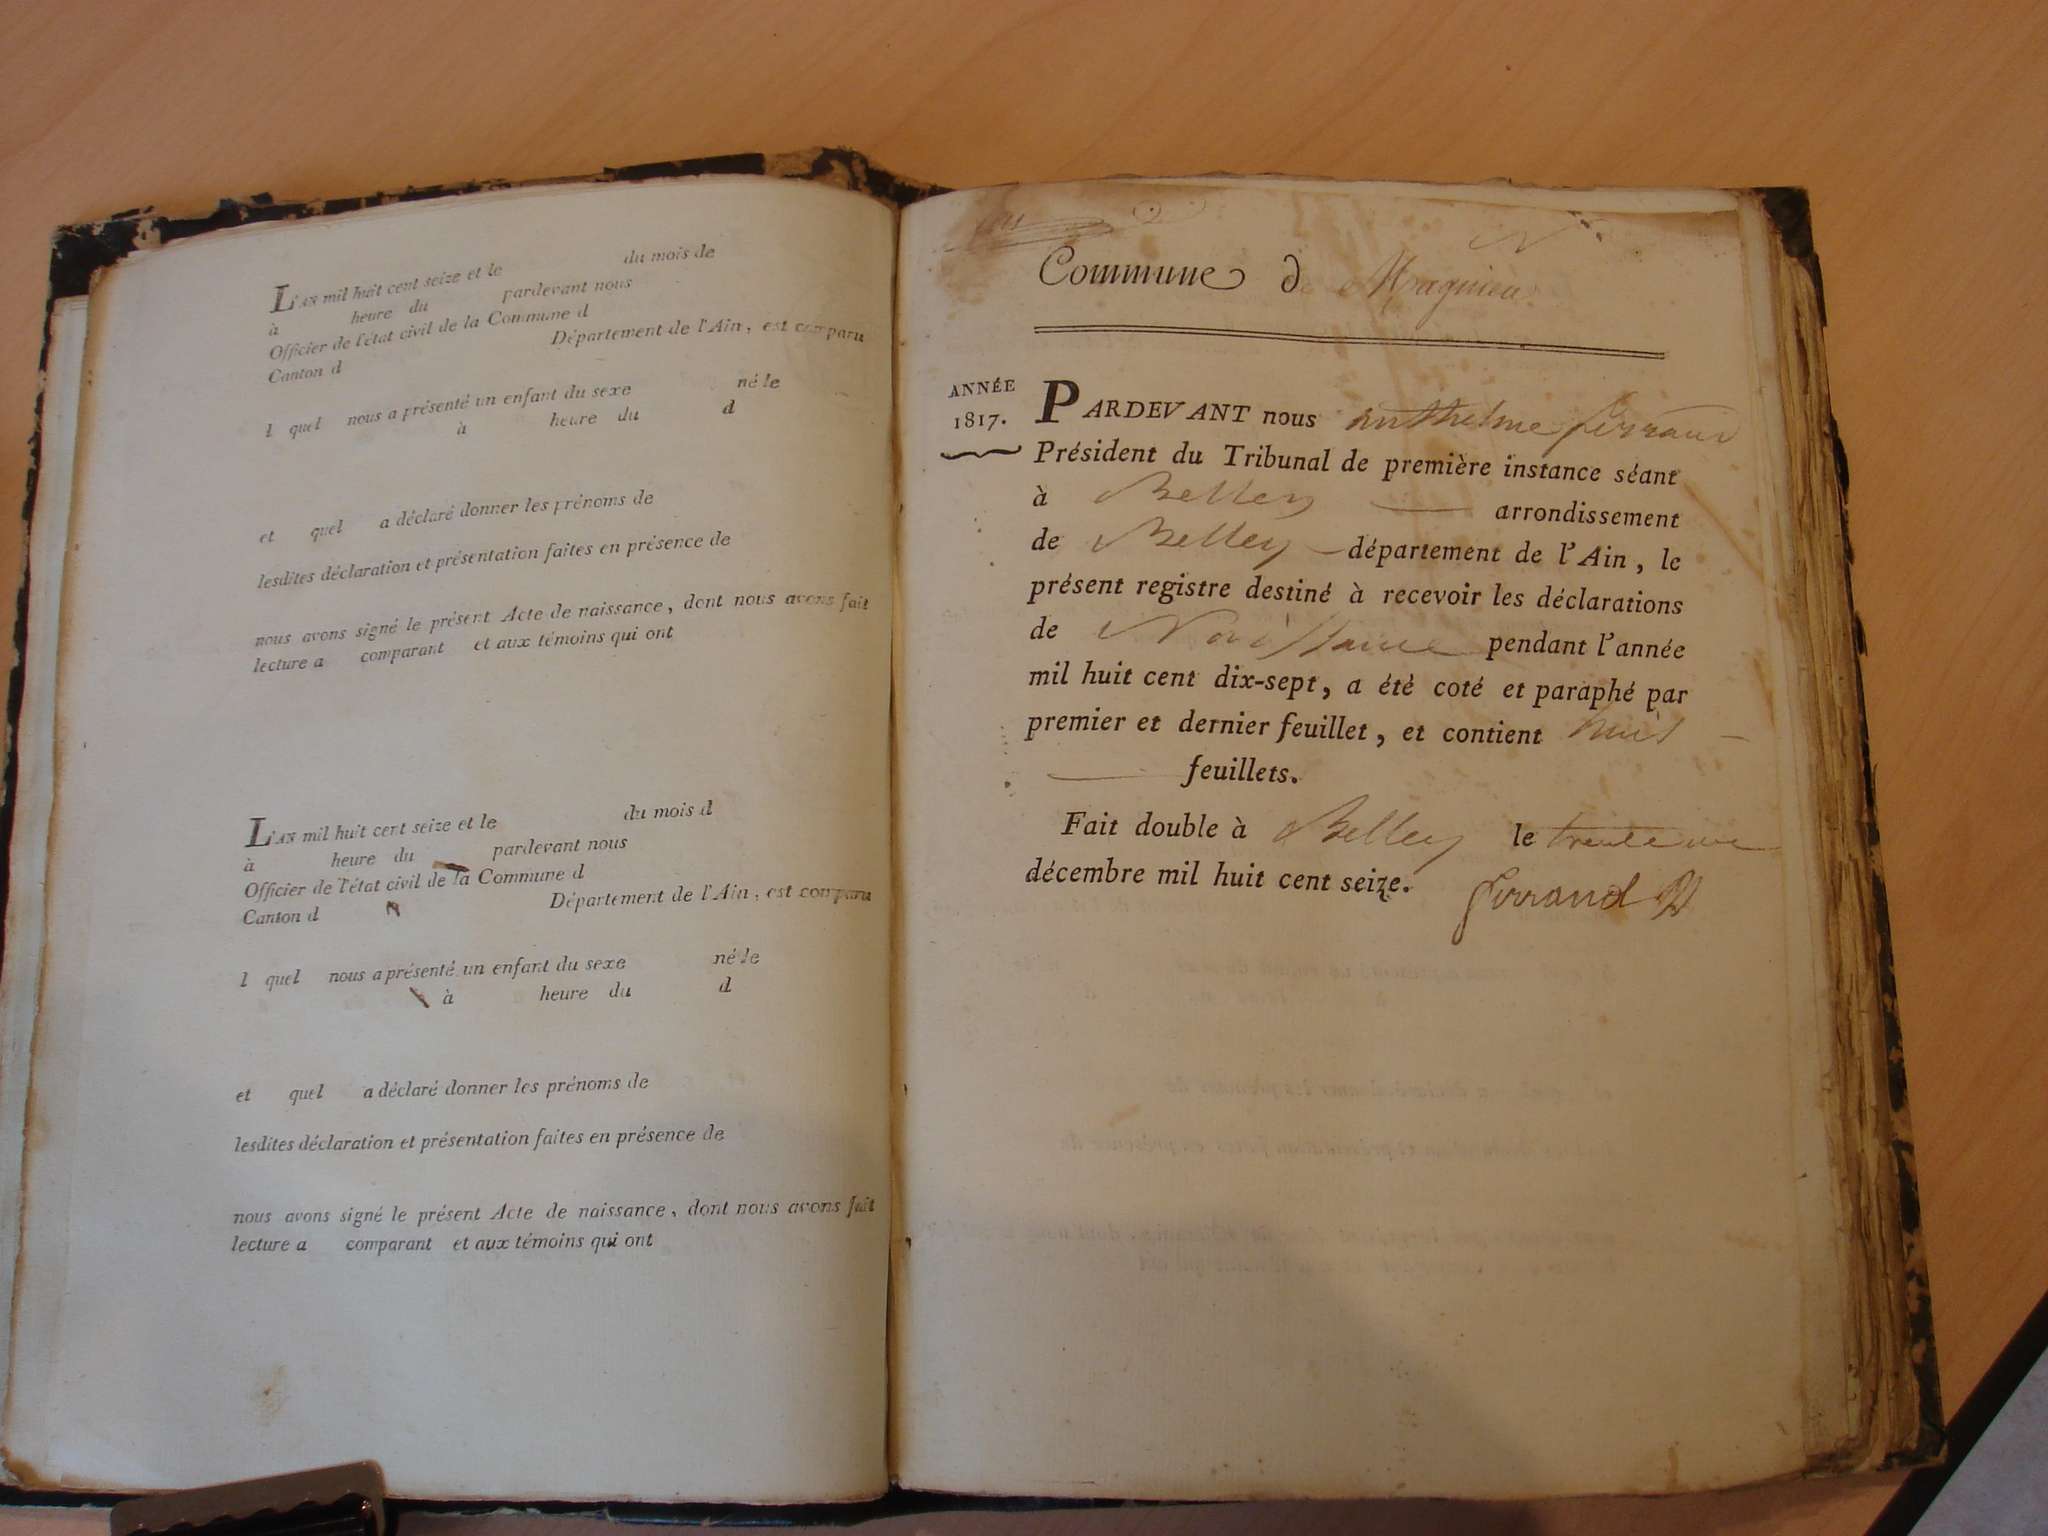 L'AN mil huit cent seize et le du mois de
à heure du pardevant nous
Officier de l'état civil de la Commune d
Canton d Département de l'Ain, est comparu
l quel nous a présenté un enfant du sexe né le
à heure du d
et quel a déclaré donner les prénoms de
lesdites déclaration et présentation faites en présence de
nous avons signé le présent Acte de naissance, dont nous avons fait
lecture a comparant et aux témoins qui ont
L'AN mil huit cent seize et le du mois d
à heure du pardevant nous
Officier de l'état civil de la Commune d
Canton d Département de l'Ain, est comparu
l quel nous a présenté un enfant du sexe né le
à heure du d
et quel a déclaré donner les prénoms de
lesdites déclaration et présentation faites en présence de
nous avons signé le présent Acte de naissance, dont nous avons fait
lecture a comparant et aux témoins qui ont
Commune de Magnieu
ANNÉE
1817.
PARDEVANT nous anthelme ferrand
Président du Tribunal de première instance séant
à Belley arrondissement
de Belley département de l'Ain, le
présent registre destiné à recevoir les déclarations
de Naissance pendant l'année
mil huit cent dix-sept, a été coté et paraphé par
premier et dernier feuillet, et contient huit
feuillets.
Fait double à Belley le trente une
décembre mil huit cent seize. ferrand